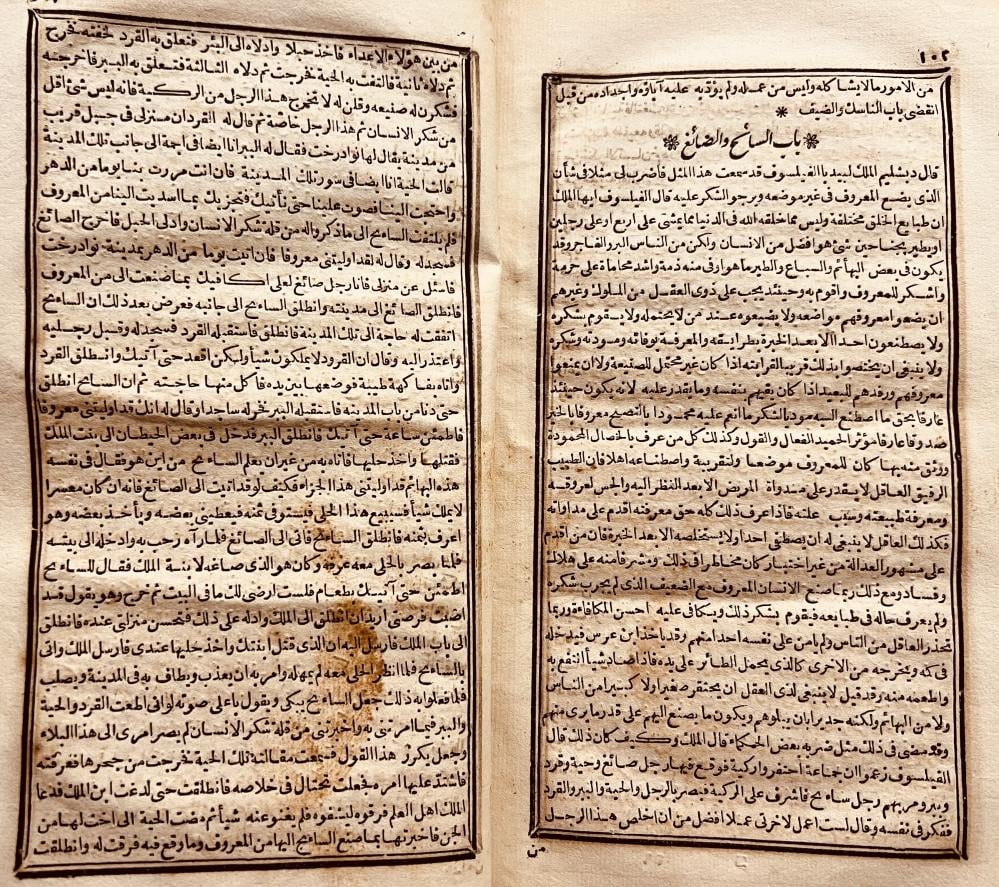 ١٠٢
من الامور ما لا يشا كله وليس من عمله ولم يؤدبه عليه آباؤه واجداده من قبل
انقضى باب الناسك والضيف
باب السائح والصائغ
قال دبشليم الملك لبيدبا الفيلسوف قد سمعت هذا المثل فاضرب لى مثلا فى شأن
الذى يضع المعروف فى غير موضعه ويرجو الشكر عليه قال الفيلسوف ايها الملك
ان طبايع الخلق مختلفة وليس مما خلقه الله فى الدنيا مما يمشى على اربع او على رجلين
او يطير بجناحين شئ هو افضل من الانسان ولكن من الناس البر والفاجر وقد
يكون فى بعض البهائم والسباع والطير ما هو اوفى منه ذمة واشد محاماة على حرمه
واشكر للمعروف واقوم به وحينئذ يجب على ذوى العقل من الملوك وغيرهم
ان يضعوا معروفهم مواضعه ولا يضيعوه عند من لا يحتمله ولا يقوم بشكره
ولا يصطنعون احدا الا بعد الخبرة بطرائقه والمعرفة بوفائه ومودته وشكره
ولا ينبغى ان يختصوا بذلك قريبا لقرابته اذا كان غير محتمل للصنيعة ولا ان يمنعوا
معروفهم ورفدهم للبعيد اذا كان يقيهم بنفسه وما يقدر عليه لانه يكون حينئذ
عارفا بحق ما اصطنع اليه موديا لشكر ما انعم عليه محمودا بالنصح معروفا بالخير
صدوقا عارفا مؤثرا لحميد الفعال والقول وكذلك كل من عرف بالخصال المحمودة
ووثق منه بها كان للمعروف موضعا ولتقريبة واصطناعه اهلا فان الطبيب
الرفيق العاقل لا يقدر على مداواة المريض الا بعد النظر اليه والجس لعروقه
ومعرفة طبيعته وسبب علته فاذا عرف ذلك كله حق معرفته اقدم على مداواته
فكذلك العاقل لا ينبغى له ان يصطفى احدا ولا يستخلصه الا بعد الخبرة فان من اقدم
على مشهور العدالة من غير اختبار كان مخاطرا فى ذلك ومشرفا منه على هلاك
وفساد ومع ذلك ربما صنع الانسان المعروف مع الضعيف الذى لم يجرب شكره
ولم يعرف حاله فى طبايعه فيقوم بشكر ذلك ويكافى عليه احسن المكافاءة وربما
تحذر العاقل من الناس ولم يامن على نفسه احدا منهم وقد ياخذ ابن عرس فيدخله
فى كمه ويخرجه من الاخرى كالذى يحمل الطائر على يده فاذا صاد شيأ انتفع به
واطعمه منه وقد قيل لا ينبغى لذى العقل ان يحتقر صغيرا ولا كبيرا من الناس
ولا من البهائم ولكنه جدير بان يبلوهم ويكون ما يصنع اليهم على قدر ما يرى منهم
وقد مضى فى ذلك مثل ضربه بعض الحكماء قال الملك وكيف كان ذلك قال
الفيلسوف زعموا ان جماعة احتفروا ركية فوقع فيها رجل صائغ وحية وقرد
وببر ومر بهم رجل سايح فاشرف على الركية فبصر بالرجل والحية والببر والقرد
ففكر فى نفسه وقال لست اعمل لاخرتى عملا افضل من ان اخلص هذا الرجل
من
من بين هؤلاء الاعداء فاخذ حبلا وادلاه الى البئر فتعلق به القرد لخفته فخرج
ثم دلاه ثانية فالتفت به الحية فخرجت ثم دلاه الثالثة فتعلق به الببر فاخرجته
فشكرن له صنيعه وقلن له لا تخرج هذا الرجل من الركية فانه ليس شئ اقل
من شكر الانسان ثم هذا الرجل خاصة ثم قال له القرد ان منزلى فى جبل قريب
من مدينة يقال لها نوادرخت فقال له الببر انا ايضا فى اجمة الى جانب تلك المدينة
قالت الحية انا ايضا فى سور تلك المدينة فان انت مررت بنا يوما من الدهر
واحتجت الينا فصوت علينا حتى نأتيك فنجزيك بما اسديت الينا من المعروف
فلم يلتفت السايح الى ما ذكروا له من قلة شكر الانسان وادلى الحبل فاخرج الصائغ
فسجد له وقال له لقد اوليتنى معروفا فان اتيت يوما من الدهر بمدينة نوادرخت
فاسئل عن منزلى فانا رجل صائغ لعلى اكافيك بما صنعت الى من المعروف
فانطلق الصائغ الى مدينته وانطلق السايح الى جانبه فعرض بعد ذلك ان السايح
اتفقت له حاجة الى تلك المدينة فانطلق فاستقبله القرد فسجد له وقبل رجليه
واعتذر اليه وقال ان القرود لا يملكون شيأ ولكن اقعد حتى آتيك وانطلق القرد
واتاه بفاكهة طيبة فوضعها بين يديه فاكل منها حاجته ثم ان السايح انطلق
حتى دنا من باب المدينة فاستقبله الببر فخر له ساجدا وقال له انك قد اوليتنى معروفا
فاطمئن ساعة حتى آتيك فانطلق الببر فدخل فى بعض الحيطان الى بنت الملك
فقتلها واخذ حليها فاتاه به من غير ان يعلم السايح من اين هو فقال فى نفسه
هذه البهائم قد اوليتنى هذا الجزاء فكيف لو قد اتيت الى الصائغ فانه ان كان معسرا
لا يملك شيأ فسيبيع هذا الحلى فيستوفى ثمنه فيعطينى بعضه ويأخذ بعضه وهو
اعرف بثمنه فانطلق السايح فاتى الى الصائغ فلما رآه رحب به وادخله الى بيته
فلما بصر بالحلى معه عرفه وكان هو الذى صاغه لابنة الملك فقال للسايح
اطمئن حتى آتيك بطعام فلست ارضى لك ما فى البيت ثم خرج وهو يقول قد
اصبت فرصتى اريد ان انطلق الى الملك وادله على ذلك فتحسن منزلتى عنده فانطلق
الى باب الملك فارسل اليه ان الذى قتل ابنتك واخذ حليها عندى فارسل الملك واتى
بالسايح فلما نظر الحلى معه لم يمهله وامر به ان يعذب ويطاف به فى المدينة ويصلب
فلما فعلوا به ذلك جعل السايح يبكى ويقول باعلى صوته لو انى اطعت القرد والحية
والببر فيما امرتنى به واخبرتنى من قلة شكر الانسان لم يصر امرى الى هذا البلاء
وجعل يكرر هذا القول فسمعت مقالته تلك الحية فخرجت من جحرها فعرفته
فاشتد عليها امره فجعلت تحتال فى خلاصه فانطلقت حتى لدغت ابن الملك فدعا
الملك اهل العلم فرقوه ليشفوه فلم يغنوا عنه شيأ ثم مضت الحية الى اخت لها من
الجن فاخبرتها بما صنع السايح اليها من المعروف وما وقع فيه فرقت له وانطلقت